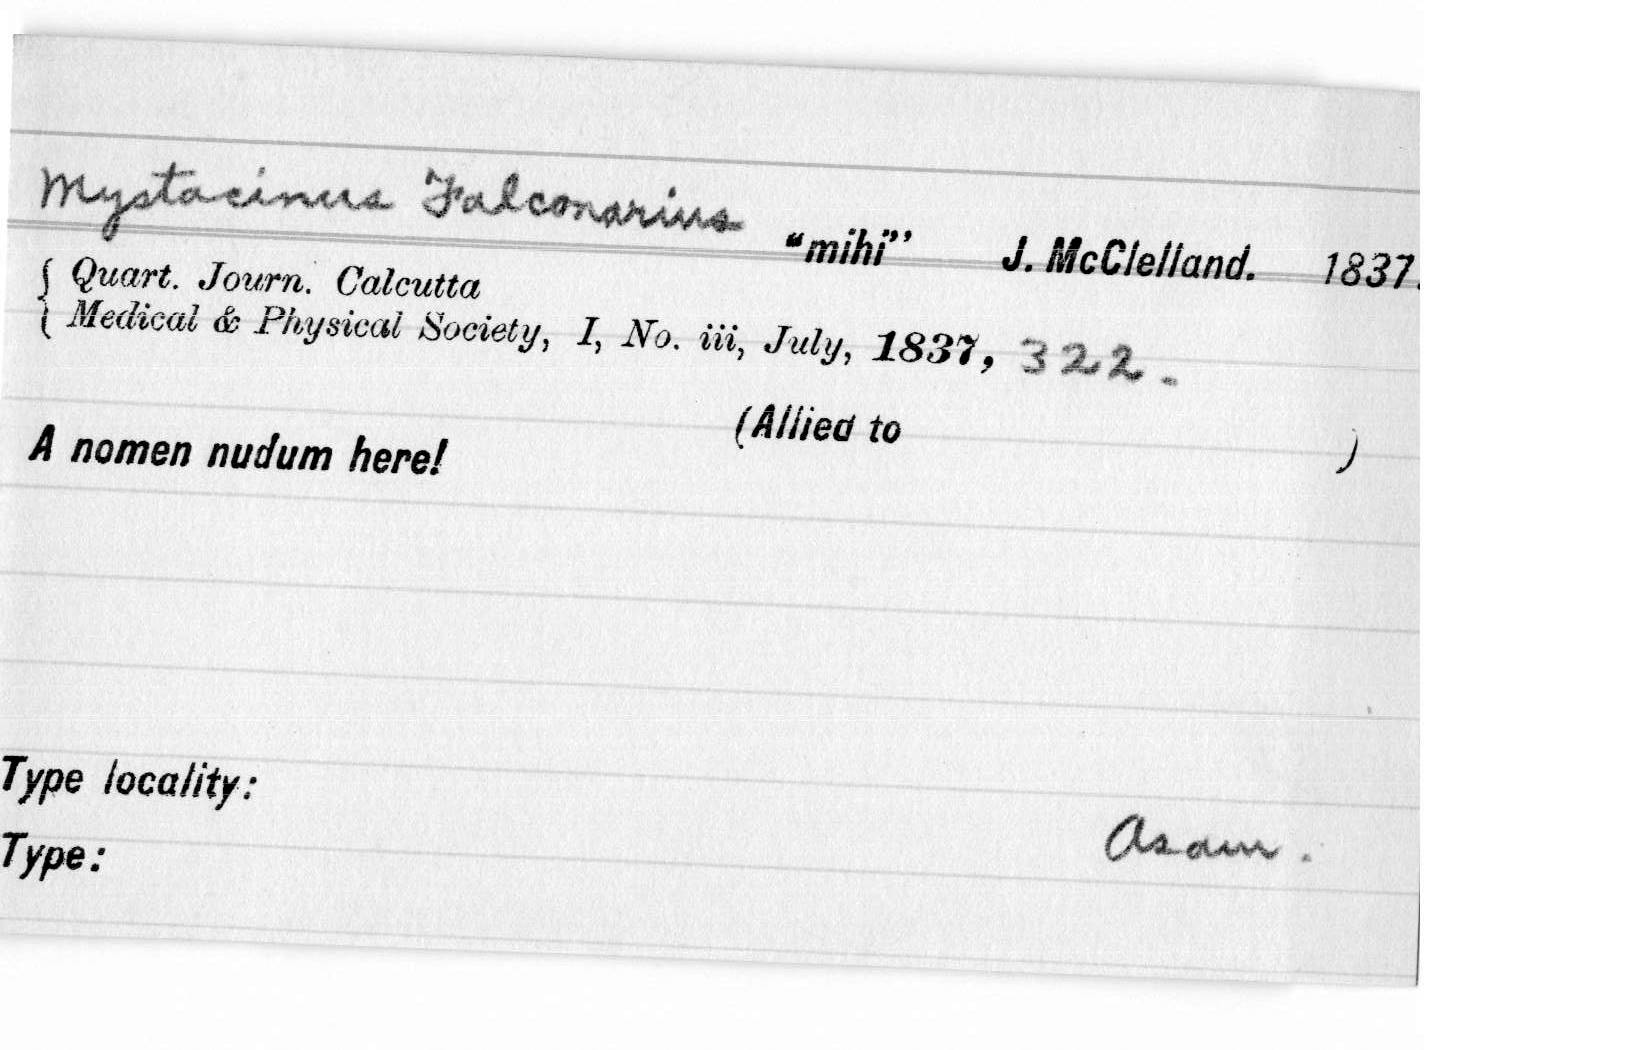 Mystacinus Falconarius "mihi" J. McClelland. 1837.
{ Quart. Journ. Calcutta
{ Medical & Physical Society, I, No. iii, July, 1837, 322.
(Allied to )
A nomen nudum here!
Type locality:
Asam.
Type: